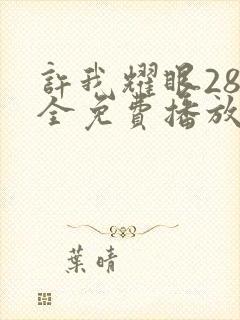 許我耀眼28
全免費播放
葉晴